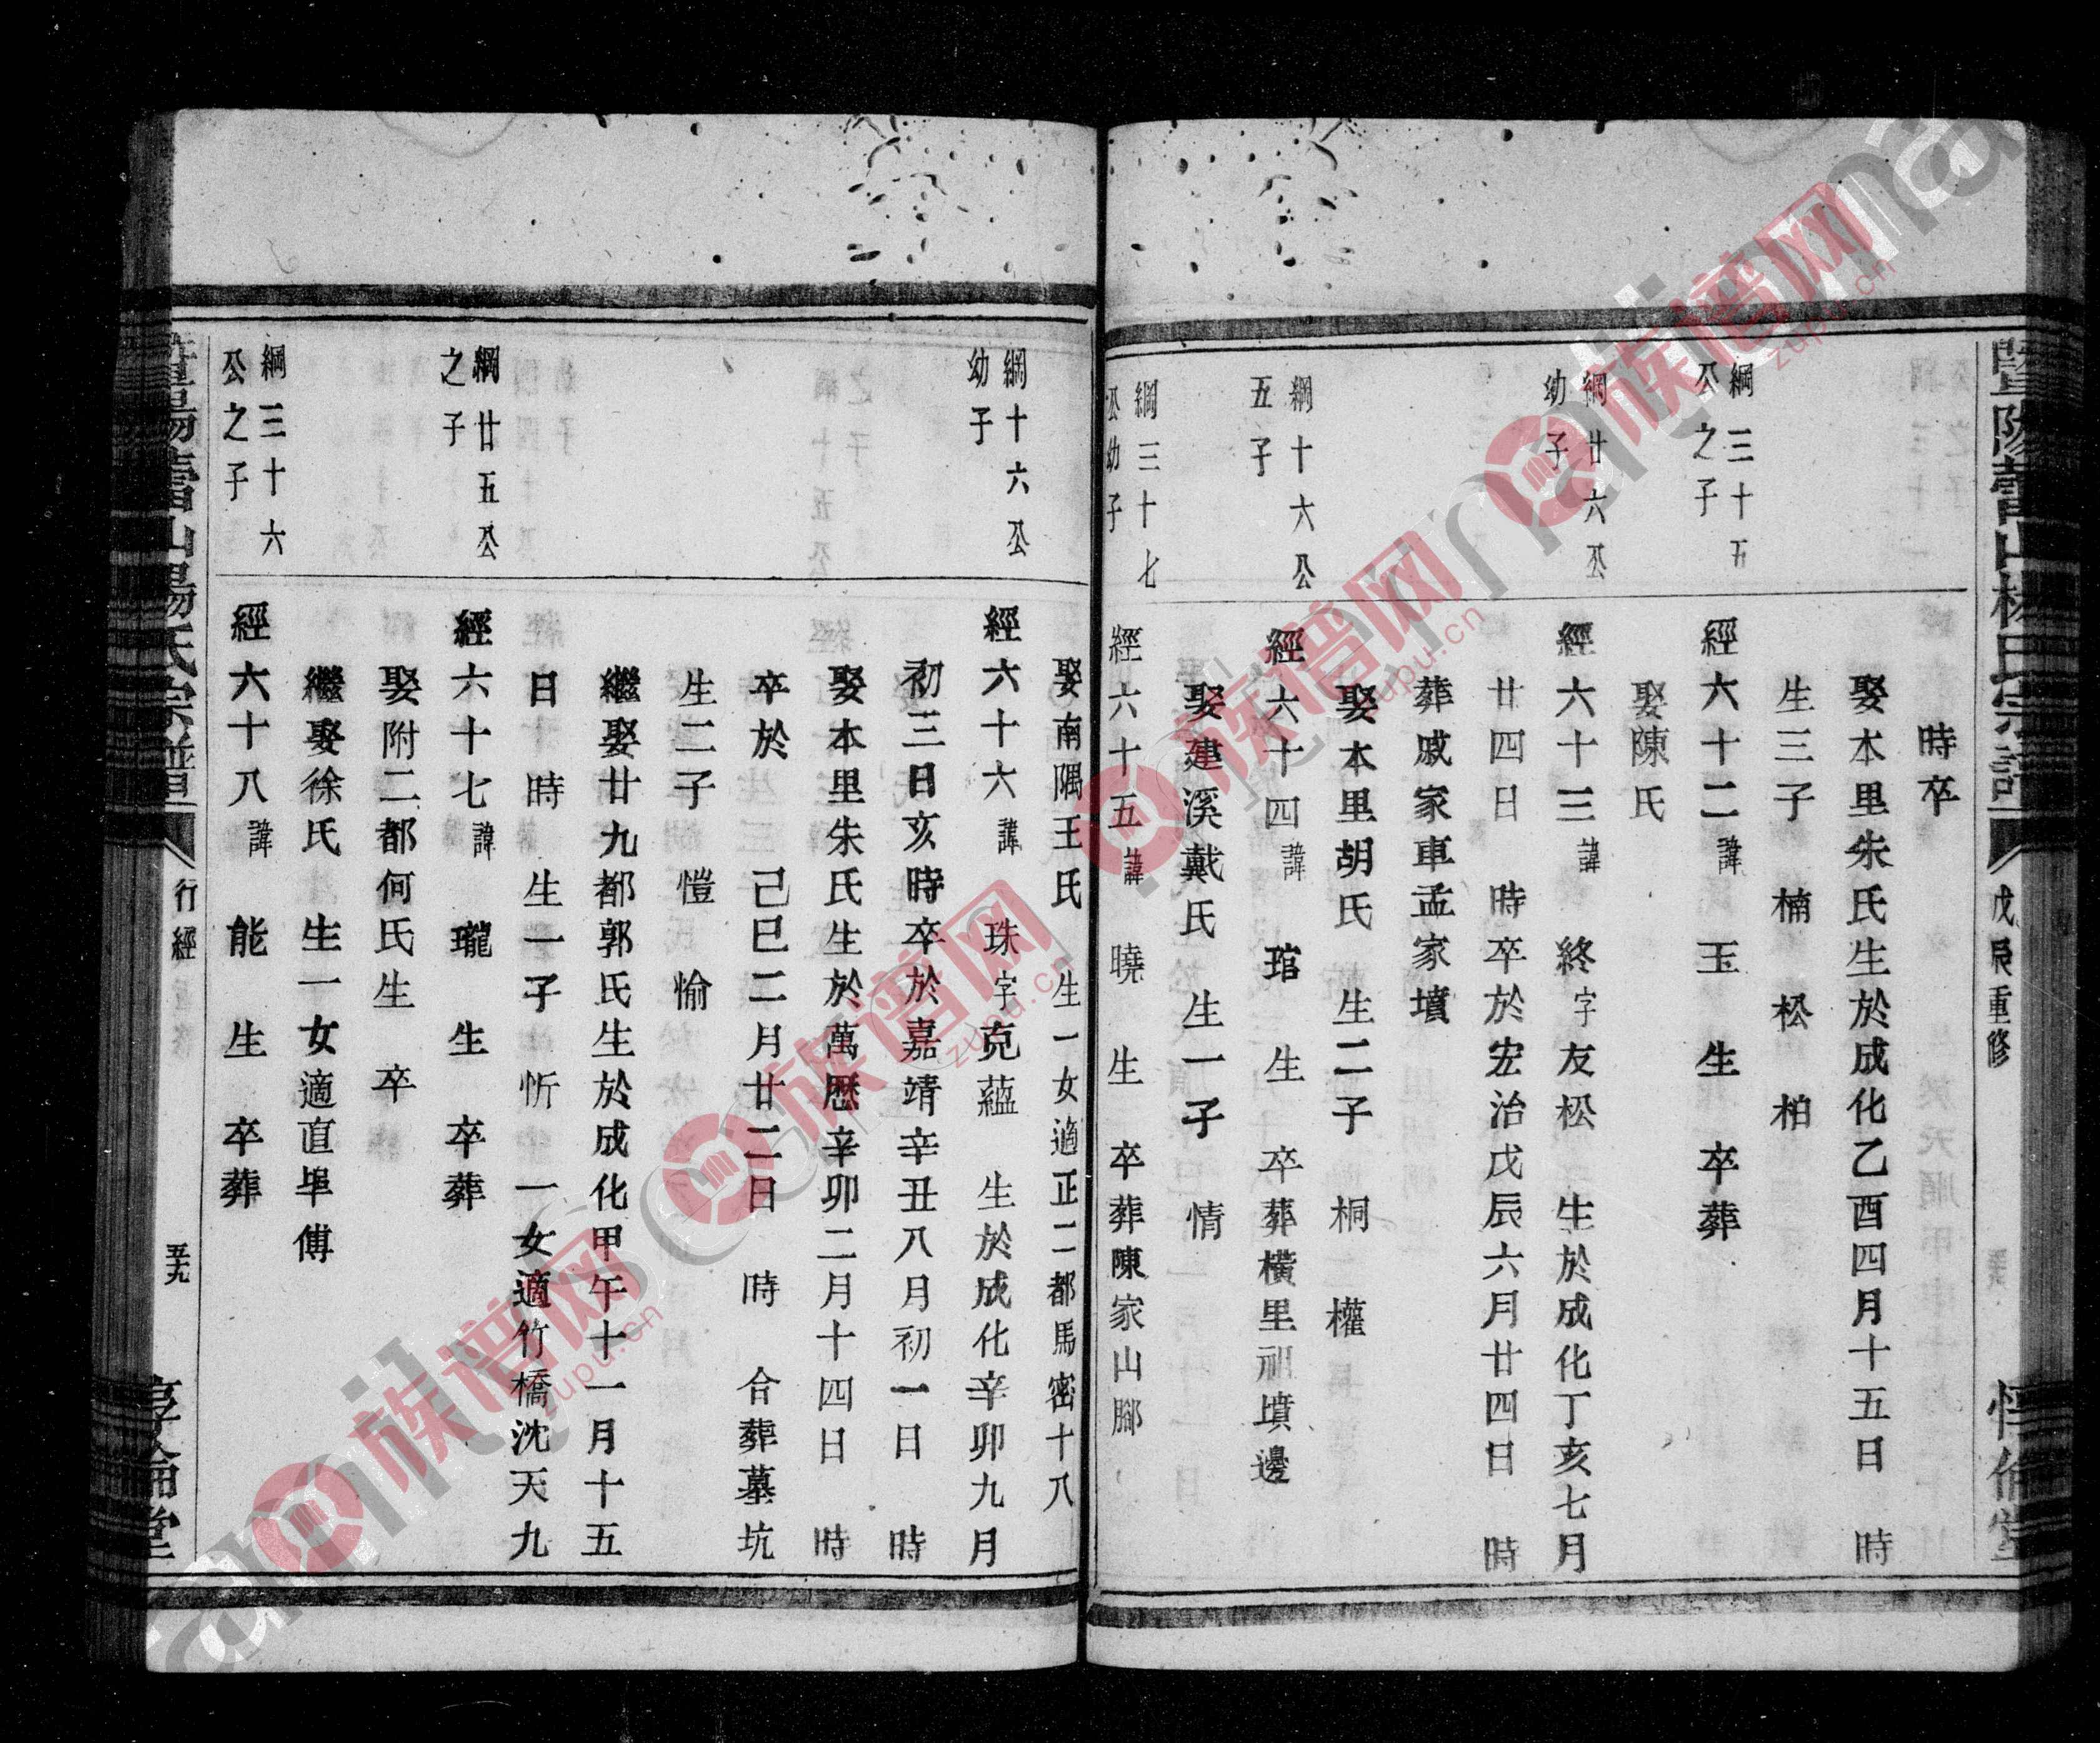 暨陽蕾山楊氏宗譜
戊辰重修
惇倫堂
時卒
娶本里朱氏生於成化乙酉四月十五日 時
生三子 楠 松 柏
綱三十五公之子
經六十二諱 玉 生 卒葬
娶陳氏
綱廿六公幼子
經六十三諱 終字友松 生於成化丁亥七月
廿四日 時卒於宏治戊辰六月廿四日 時
葬戚家車孟家墳
娶本里胡氏 生二子 桐 權
綱十六公五子
經六十四諱 琯 生 卒葬橫里祖墳邊
娶建溪戴氏 生一子 情
綱三十七公幼子
經六十五諱 曉 生 卒葬陳家山腳
娶南隅王氏 生一女適正二都馬密十八
綱十六公幼子
經六十六諱 珠字克蘊 生於成化辛卯九月
初三日亥時卒於嘉靖辛丑八月初一日 時
娶本里朱氏生於萬歷辛卯二月十四日 時
卒於 己巳二月廿二日 時 合葬墓坑
生二子 愷 愉
繼娶廿九都郭氏生於成化甲午十一月十五
日 時 生一子 忻 一女適竹橋沈天九
綱廿五公之子
經六十七諱 瓏 生 卒葬
娶附二都何氏生 卒
繼娶徐氏 生一女適直埠傅
綱三十六公之子
經六十八諱 能 生 卒葬
暨陽蕾山楊氏宗譜
行經
五十九
惇倫堂
族谱网
zupu.cn
族谱网
zupu.cn
族谱网
zupu.cn
族谱网
zupu.cn
族谱网
zupu.cn
族谱网
zupu.cn